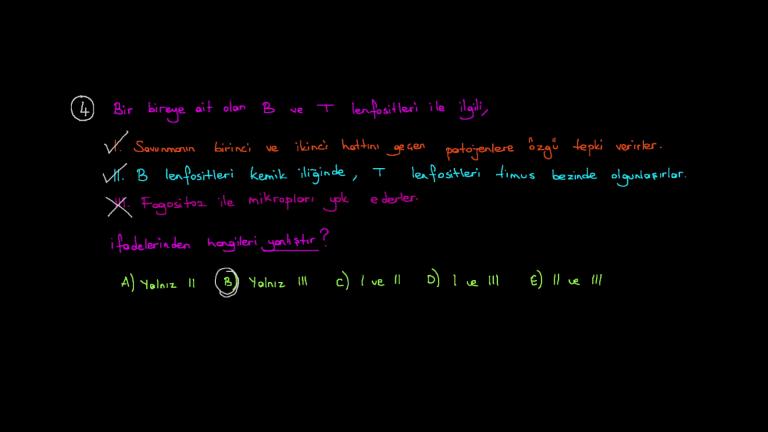 4 Bir bireye ait olan B ve T lenfositleri ile ilgili,
I. Savunmanın birinci ve ikinci hattını geçen patojenlere özgü tepki verirler.
II. B lenfositleri kemik iliğinde, T lenfositleri timus bezinde olgunlaşırlar.
III. Fagositoz ile mikropları yok ederler.
ifadelerinden hangileri yanlıştır?
A) Yalnız II B) Yalnız III C) I ve II D) I ve III E) II ve III